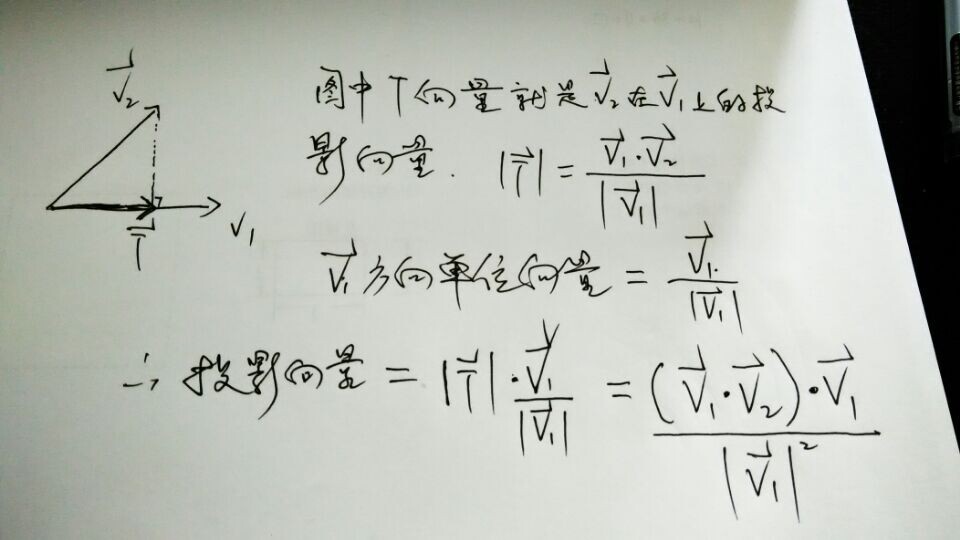 V⃗₂
图中T向量就是V⃗₂在V⃗₁上的投
影向量. |T⃗| = (V⃗₁·V⃗₂)/|V⃗₁|
V₁
T⃗
V⃗₁方向单位向量 = V⃗₁/|V⃗₁|
∴ 投影向量 = |T⃗|·V⃗₁/|V⃗₁| = (V⃗₁·V⃗₂)·V⃗₁/|V⃗₁|²